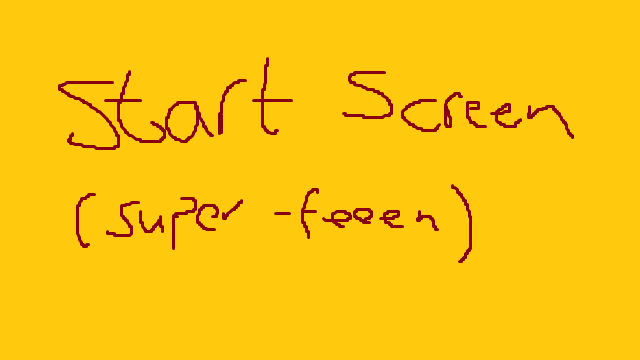 Start Screen
(super-feeen)